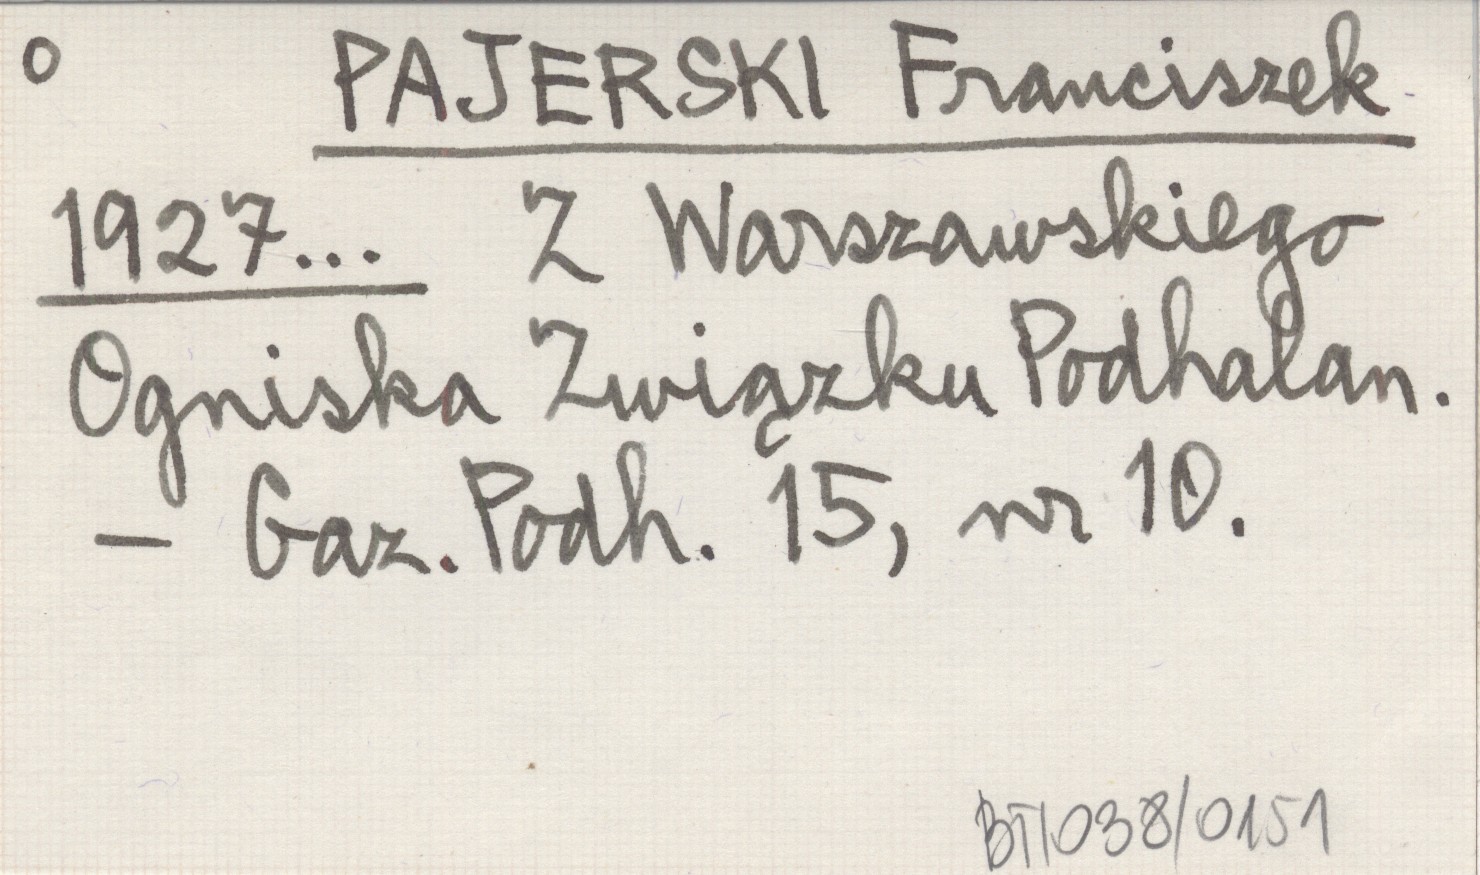 o PAJERSKI Franciszek
1927... Z Warszawskiego
Ogniska Związku Podhalan.
— Gaz. Podh. 15, nr 10.
BT/038/0151